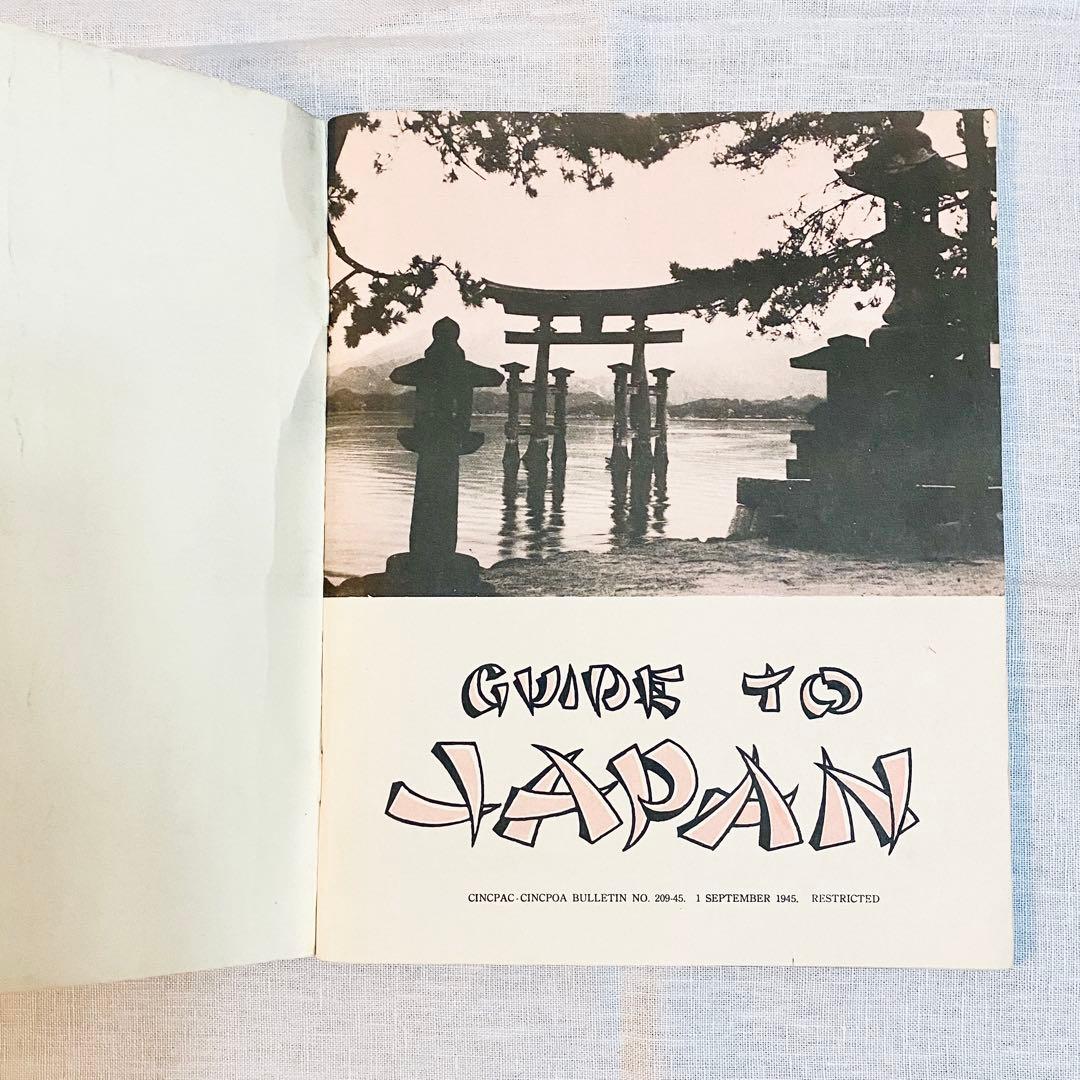 GUIDE TO
JAPAN
CINCPAC-CINCPOA BULLETIN NO. 209-45. 1 SEPTEMBER 1945. RESTRICTED